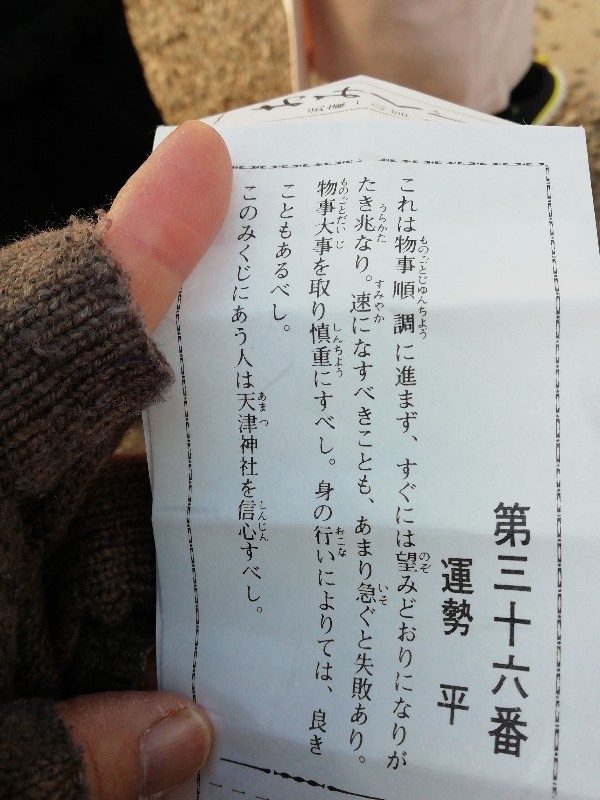 第三十六番
運勢 平
これは物事順調に進まず、すぐには望みどおりになりが
たき兆なり。速になすべきことも、あまり急ぐと失敗あり。
物事大事を取り慎重にすべし。身の行いによりては、良き
こともあるべし。
このみくじにあう人は天津神社を信心すべし。